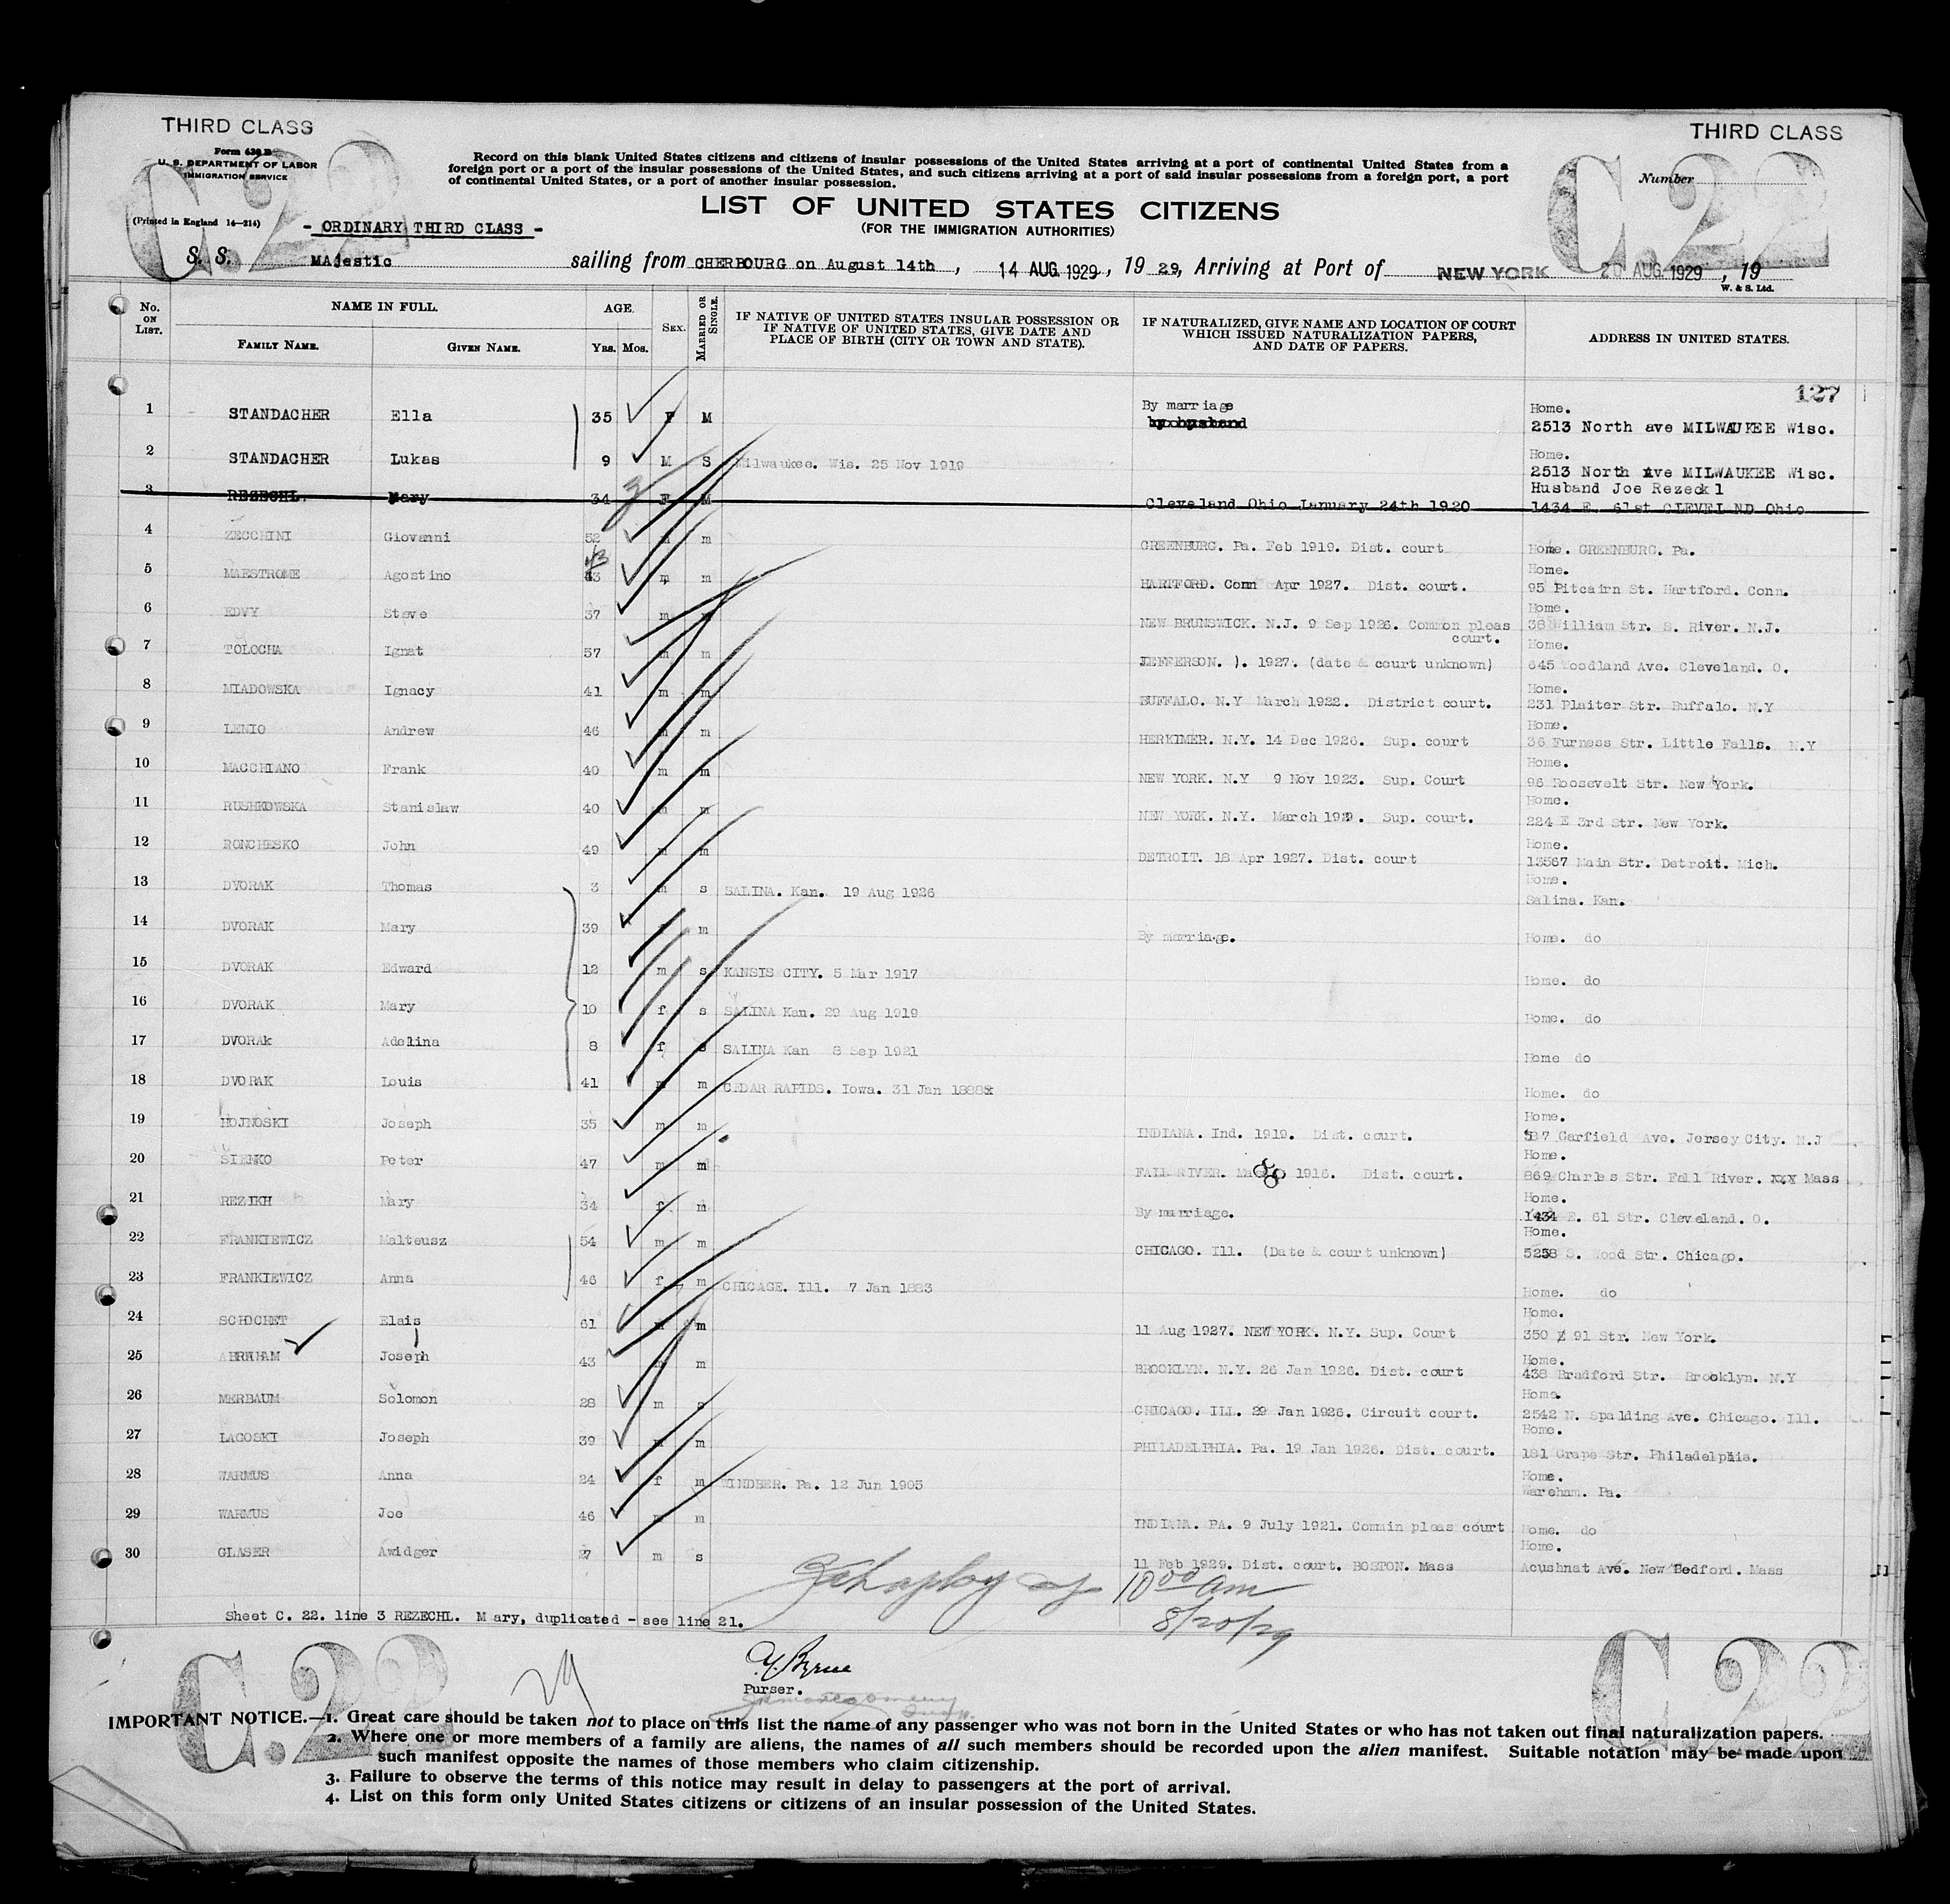 THIRD CLASS
THIRD CLASS
C.22
C.22
Form 630 B
U. S. DEPARTMENT OF LABOR
IMMIGRATION SERVICE
(Printed in England 14—214)
Record on this blank United States citizens and citizens of insular possessions of the United States arriving at a port of continental United States from a
foreign port or a port of the insular possessions of the United States, and such citizens arriving at a port of said insular possessions from a foreign port, a port
of continental United States, or a port of another insular possession.
Number
LIST OF UNITED STATES CITIZENS
(FOR THE IMMIGRATION AUTHORITIES)
- ORDINARY THIRD CLASS -
S. S. MAjestic sailing from CHERBOURG on August 14th, 14 AUG 1929, 19 29, Arriving at Port of NEW YORK 20 AUG 1929, 19
W. & S. Ltd.
No. ON LIST. NAME IN FULL. FAMILY NAME. GIVEN NAME. AGE. YRS. MOS. SEX. MARRIED OR SINGLE. IF NATIVE OF UNITED STATES INSULAR POSSESSION OR IF NATIVE OF UNITED STATES, GIVE DATE AND PLACE OF BIRTH (CITY OR TOWN AND STATE). IF NATURALIZED, GIVE NAME AND LOCATION OF COURT WHICH ISSUED NATURALIZATION PAPERS, AND DATE OF PAPERS. ADDRESS IN UNITED STATES.
127
1 STANDACHER Ella 35 F M By marriage by husband Home. 2513 North ave MILWAUKEE Wisc.
2 STANDACHER Lukas 9 M S Milwaukee. Wis. 25 Nov 1919 Home. 2513 North Ave MILWAUKEE Wisc.
3 REZECHL. Mary 34 F M Cleveland Ohio January 24th 1920 Husband Joe Rezeckl 1434 E. 61st CLEVELND Ohio
4 ZECCHINI Giovanni 52 m m GREENBURG. Pa. Feb 1919. Dist. court Home. GREENBURG. Pa.
5 MAESTROME Agostino 43 m m HARTFORD. Conn Apr 1927. Dist. court. Home. 95 Pitcairn St. Hartford. Conn.
6 EDVY Steve 37 m m NEW BRUNSWICK. N.J. 9 Sep 1926. Common pleas court. Home. 38 William Str. S. River. N.J.
7 TOLOCHA Ignat 57 m m JEFFERSON. ). 1927. (date & court unknown) Home. 645 Woodland Ave. Cleveland. O.
8 MIADOWSKA Ignacy 41 m m BUFFALO. N.Y March 1922. District court. Home. 231 Plaiter Str. Buffalo. N.Y
9 LENIO Andrew 46 m m HERKIMER. N.Y. 14 Dec 1926. Sup. court Home. 36 Furness Str. Little Falls. N.Y
10 MACCHIANO Frank 40 m m NEW YORK. N.Y 9 Nov 1923. Sup. Court Home. 96 Roosevelt Str. New York.
11 RUSHKOWSKA Stanislaw 40 m m NEW YORK. N.Y. March 1929. Sup. court. Home. 224 E 3rd Str. New York.
12 RONCHESKO John 49 m m DETROIT. 18 Apr 1927. Dist. court Home. 13567 Main Str. Detroit. Mich.
13 DVORAK Thomas 3 m s SALINA. Kan. 19 Aug 1926 Home. Salina. Kan.
14 DVORAK Mary 39 m By marriage. Home. do
15 DVORAK Edward 12 m s KANSIS CITY. 5 Mar 1917 Home. do
16 DVORAK Mary 10 f s SALINA Kan. 29 Aug 1919 Home. do
17 DVORAk Adelina 8 f s SALINA Kan 8 Sep 1921 Home do
18 DVORAK Louis 41 m m CEDAR RAPIDS. Iowa. 31 Jan 1888 Home. do
19 HOJNOSKI Joseph 35 m m INDIANA. Ind. 1919. Dist. court. Home. 587 Garfield Ave. Jersey City. N.J
20 SIENKO Peter 47 m m FALL RIVER. 1916. Dist. court. Home. 869 Charles Str. Fall River. XXX Mass
21 REZIKH Mary 34 f m By marriage. Home. 1434 E. 61 Str. Cleveland. O.
22 FRANKIEWICZ Malteusz 54 m m CHICAGO. Ill. (Date & court unknown) Home. 5258 S. Wood Str. Chicago.
23 FRANKIEWICZ Anna 46 f m CHICAGE. Ill. 7 Jan 1883 Home. do
24 SCHOCHET Elais 61 m m 11 Aug 1927. NEW YORK. N.Y. Sup. Court Home. 350 E 91 Str. New York.
25 ABRAHAM Joseph 43 m m BROOKLYN. N.Y. 26 Jan 1926. Dist. court Home. 438 Bradford Str. Brooklyn. N.Y
26 MERBAUM Solomon 28 m s CHICAGO. ILL. 29 Jan 1926. Circuit court. Home. 2542 N. Spalding Ave. Chicago. Ill.
27 LAGOSKI Joseph 39 m m PHILADELPHIA. Pa. 19 Jan 1926. Dist. court. Home. 181 Grape Str. Philadelphia.
28 WARMUS Anna 24 f m WINDBER. Pa. 12 Jun 1905 Home. Wareham. Pa.
29 WARMUS Joe 46 m m INDIANA. PA. 9 July 1921. Commin pleas court Home. do
30 GLASER Awidger 27 m s 11 Feb 1929. Dist. court. BOSTON. Mass Home. Acushnat Ave. New Bedford. Mass
10 00 am
8/20/29
Sheet C. 22. line 3 REZECHL. Mary, duplicated - see line 21.
C.22
C.22
Y. Byrne
Purser.
IMPORTANT NOTICE.—1. Great care should be taken not to place on this list the name of any passenger who was not born in the United States or who has not taken out final naturalization papers.
2. Where one or more members of a family are aliens, the names of all such members should be recorded upon the alien manifest. Suitable notation may be made upon
such manifest opposite the names of those members who claim citizenship.
3. Failure to observe the terms of this notice may result in delay to passengers at the port of arrival.
4. List on this form only United States citizens or citizens of an insular possession of the United States.